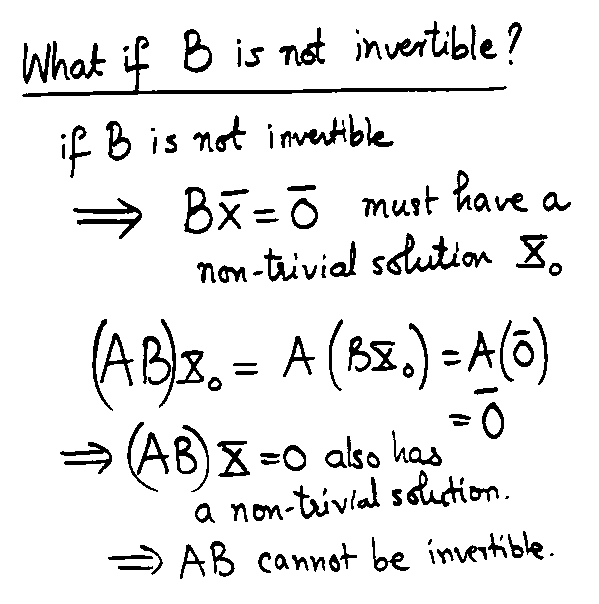 What if B is not invertible?
if B is not invertible
⟹ Bx̄ = 0̄ must have a
non-trivial solution x̄₀
(AB)x̄₀ = A(Bx̄₀) = A(0̄)
= 0̄
⟹ (AB) x̄ = 0 also has
a non-trivial solution.
⟹ AB cannot be invertible.